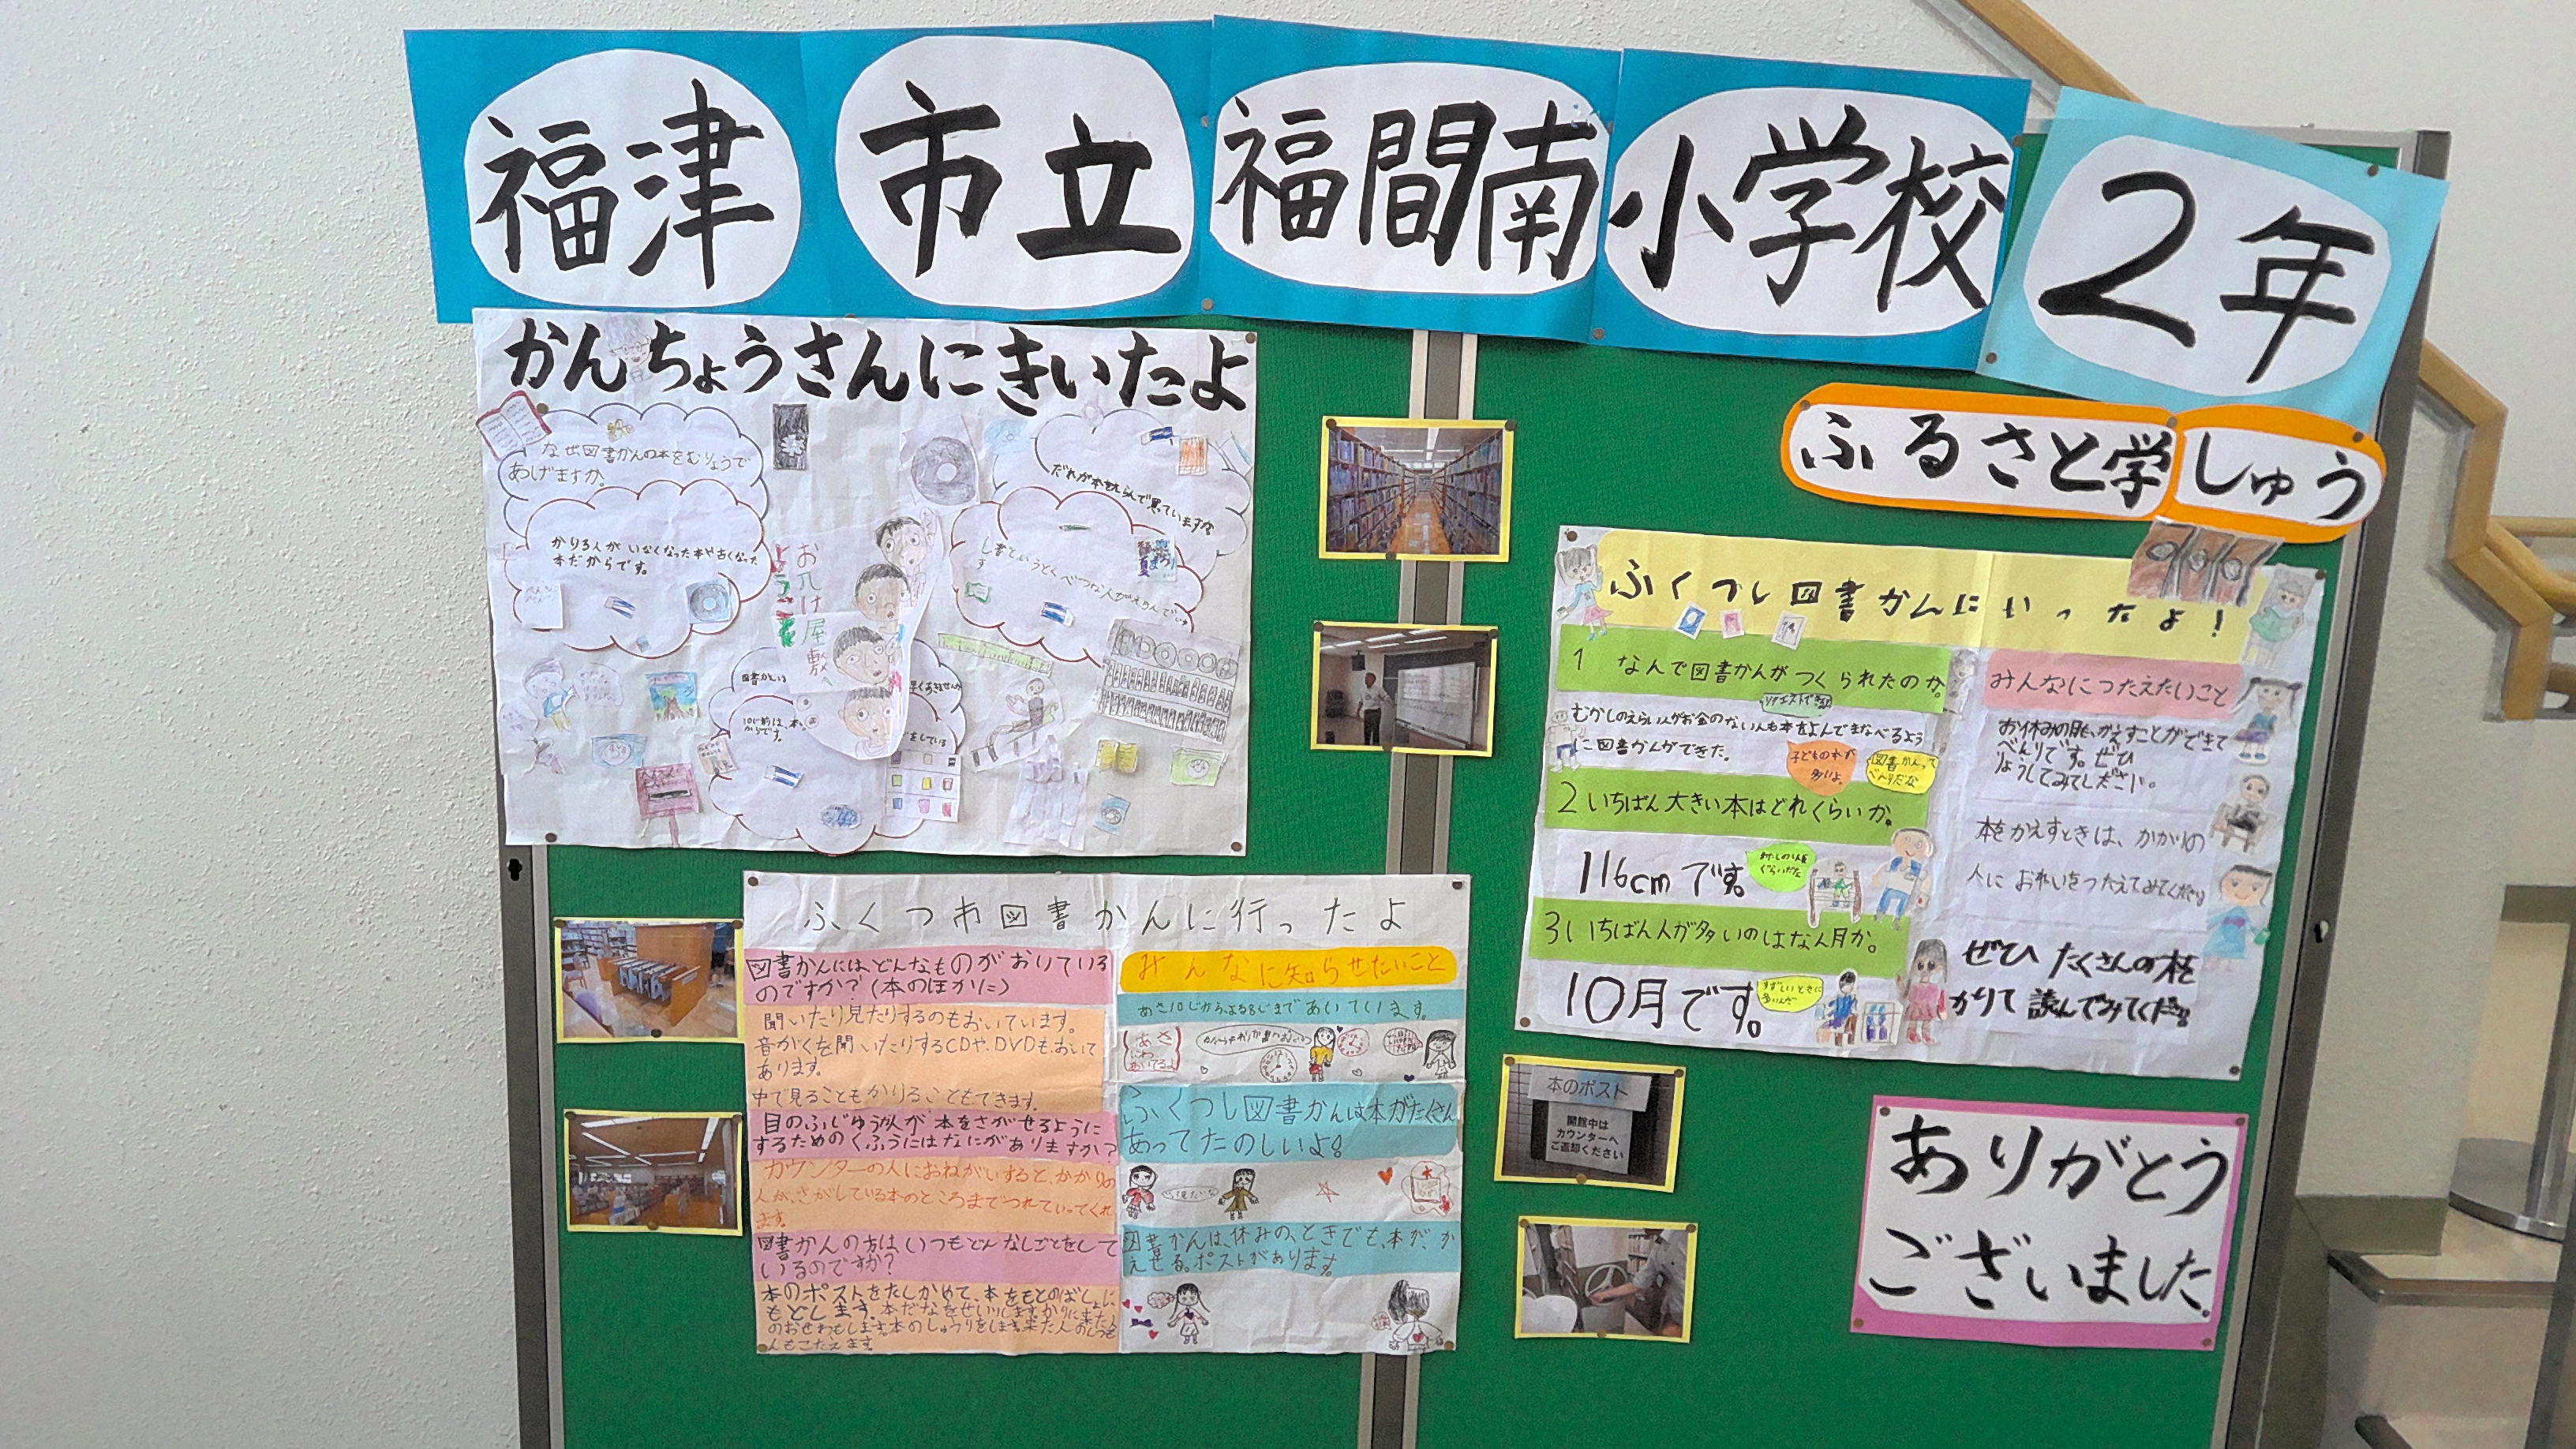 福津市立福間南小学校2年
ふるさと学しゅう
かんちょうさんにきいたよ
なぜ図書かんの本をむりょうで
あげますか。
かりる人がいなくなった本や古くなった
本だからです。
だれが本をえらんで買っていますか
お化け屋敷へ
ふくつ市図書かんに行ったよ
図書かんにはどんなものがおいている
のですか?(本のほかに)
聞いたり見たりするのもおいています。
音がくを聞いたりするCDや、DVDもおいて
あります。
中で見ることもかりることもできます。
目のふじゆうな人が本をさがせるように
するためのくふうにはなにがありますか?
カウンターの人におねがいすると、かかりの
人が、さがしている本のところまでつれていってくれ
ます。
図書かんの方はいつもどんなしごとをして
いるのですか?
本のポストをたしかめて、本をもとのばしょに
もどします。
みんなに知らせたいこと
あさ10じからよる8じまであいています。
ふくつし図書かんは本がたくさん
あってたのしいよ!
図書かんは、休みの、ときでも、本が、か
えせる。ポストがあります。
ふくつし図書かんにいったよ!
1 なんで図書かんがつくられたのか。
リクエストできる
むかしのえらい人がお金のない人も本をよんでまなべるよう
に図書かんができた。
子どもの本が
多いよ。
図書かんって
べんりだな
2 いちばん大きい本はどれくらいか。
116cmです。
3 いちばん人が多いのはなん月か。
10月です。
すずしいときに
多いんだ
みんなにつたえたいこと
お休みの日も、かえすことができて
べんりです。ぜひ
りようしてみてください。
本をかえすときは、かかりの
人に おれいをつたえてみてください
ぜひ たくさんの本を
かりて 読んでみてください
本のポスト
開館中は
カウンターへ
ご返却ください
ありがとう
ございました。